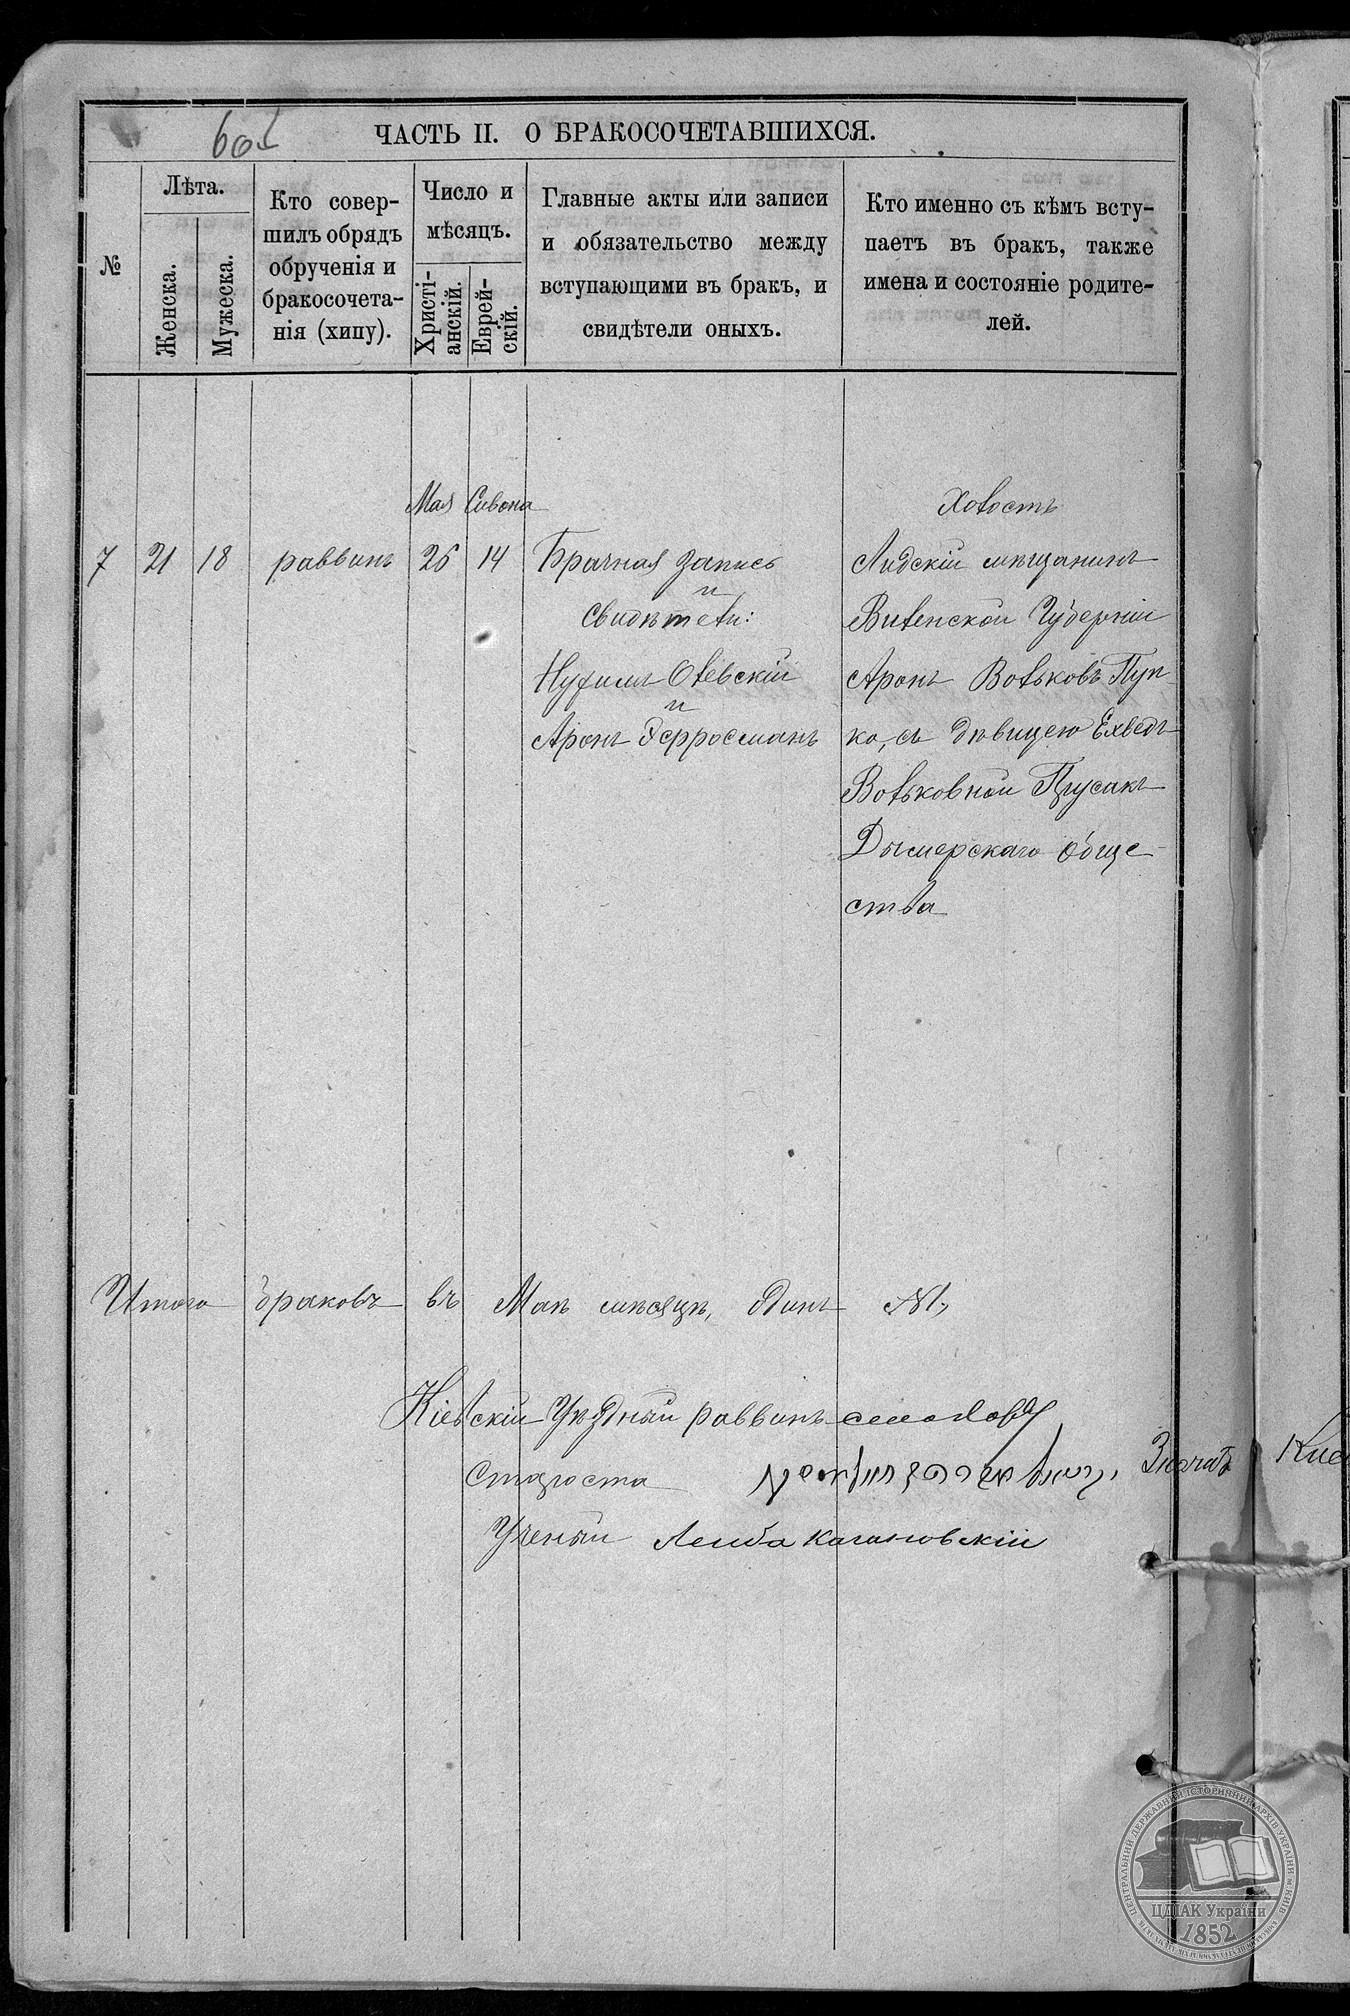 ЧАСТЬ II. О БРАКОСОЧЕТАВШИХСЯ.
№
Лѣта.
Женска.
Мужеска.
Кто совер-
шилъ обрядъ
обрученія и
бракосочета-
нія (хипу).
Число и
мѣсяцъ.
Христі-
анскій.
Еврей-
скій.
Главные акты или записи
и обязательство между
вступающими въ бракъ, и
свидѣтели оныхъ.
Кто именно съ кѣмъ всту-
паетъ въ бракъ, также
имена и состояніе родите-
лей.
Мая Сивона
7 21 18 раввинъ 26 14
Брачная запись
и
Свидѣтели:
Нухимъ Олевскій
и
Аронъ
Холостъ
Лидскій мѣщанинъ
Виленской Губерніи
Аронъ Вольковъ Пуп-
ко, съ дѣвицею Ехведъ
Вольковной Прусакъ
Дымерскаго обще-
ства
Итого браковъ въ Маѣ мѣсяцѣ, одинъ №1,
Кіевскій Уѣздный раввинъ
Староста
Ученый Лейба Кагановскій
ЦЕНТРАЛЬНИЙ ДЕРЖАВНИЙ ІСТОРИЧНИЙ АРХІВ УКРАЇНИ м. КИЇВ
ЦДІАК України
1852